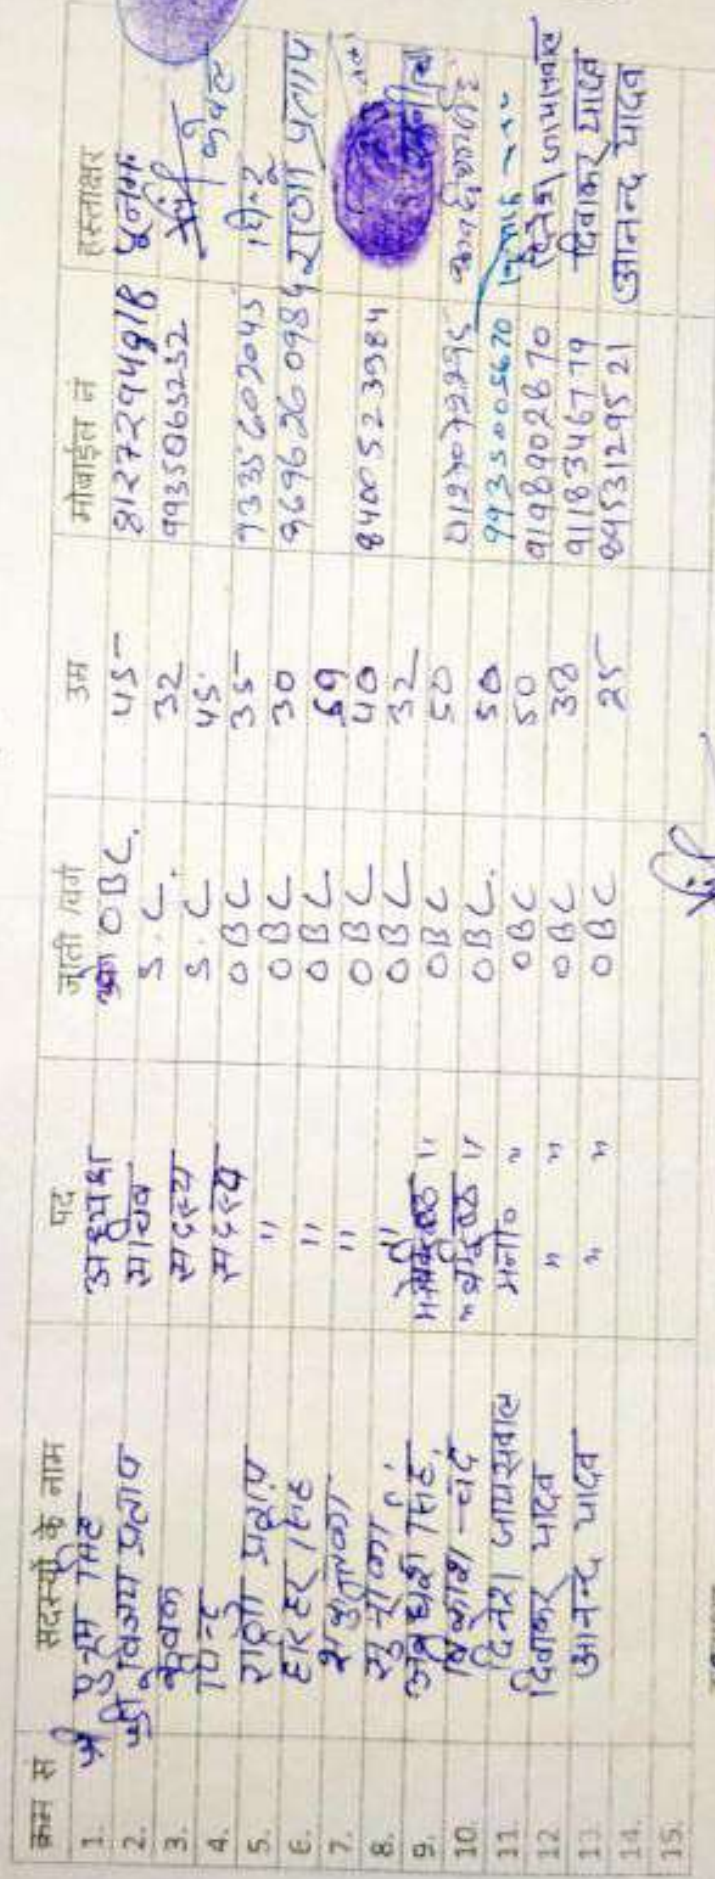 क्रम सं सदस्यों के नाम पद जाती /वर्ग उम्र मोबाईल नं हस्ताक्षर
1. श्री पुनम सिंह अध्यक्ष OBC. 45 8127294918 पुनम
2. श्री विजय प्रताप सचिव S.C. 32 9935065252
3. केवल सदस्य S.C. 45 केवल
4. पिन्टू सदस्य OBC 35 7335602045 पिन्टू
5. राणा प्रताप " OBC 30 9696260984 राणा प्रताप
6. हरिहर सिंह " OBC 59
7. शकुन्तला " OBC 40 8400523984
8. सुनीता " OBC 32
9. अवधेश सिंह " OBC 50
10. विकाश चंद " " OBC. 50 9935005670
11. दिनेश जायसवाल मनो० " OBC 50 9198902870 दिनेश जायसवाल
12 दिवाकर यादव " " OBC 38 9118346779 दिवाकर यादव
13 आनन्द यादव " " OBC 25 8953129521 आनन्द यादव
14.
15.